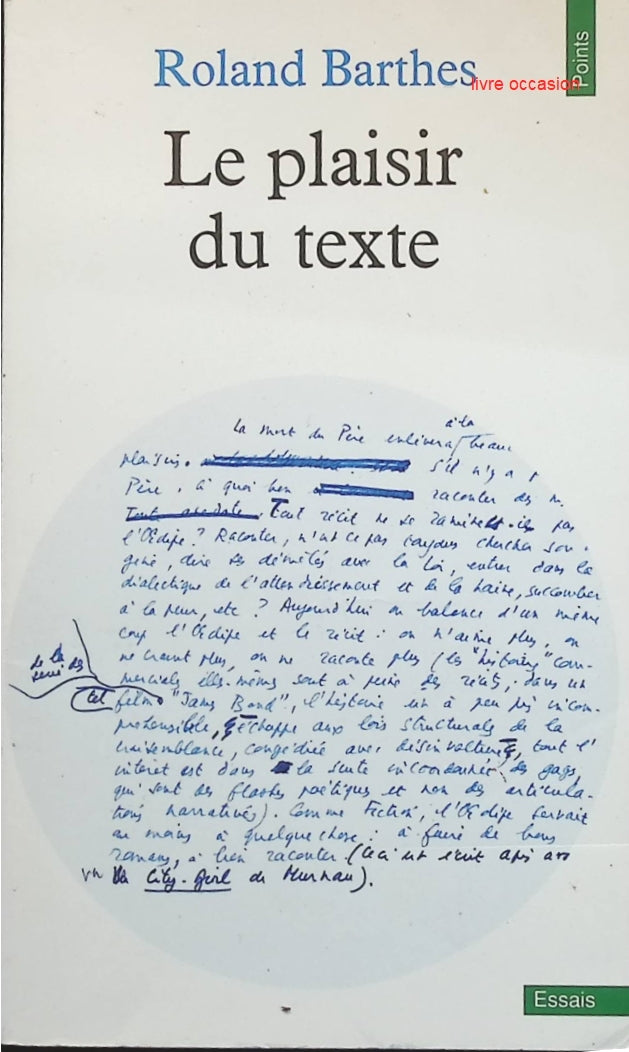 Points
Roland Barthes
livre occasion
Le plaisir
du texte
à la
La mort du Père enlèvera beau
plaisirs. S'il n'y a +
Père, à quoi bon raconter des
Tout récit ne se ramène-t-il pas
l'Œdipe? Raconter, n'est-ce pas toujours chercher son
gine, dire ses démêlés avec la Loi, entrer dans la
dialectique de l'attendrissement et de la haine, succomber
à la peur, etc? Aujourd'hui on balance d'un même
coup l'Œdipe et le récit : on n'aime plus, on
ne craint plus, on ne raconte plus (les "histoires" com-
de la
série des
merciales elles-mêmes sont à peine des récits; dans un
tel film "James Bond", l'histoire est à peu près incom-
préhensible, échappe aux lois structurales de la
vraisemblance, congédiée avec désinvolture, tout l'
intérêt est dans la suite incoordonnée des gags,
qui sont des flashes poétiques et non des articula-
tions narratives). Comme Fiction, l'Œdipe servait
au moins à quelque chose : à faire de bons
romans, à bien raconter (Ceci est écrit après avoir
vu City-Girl de Murnau).
Essais